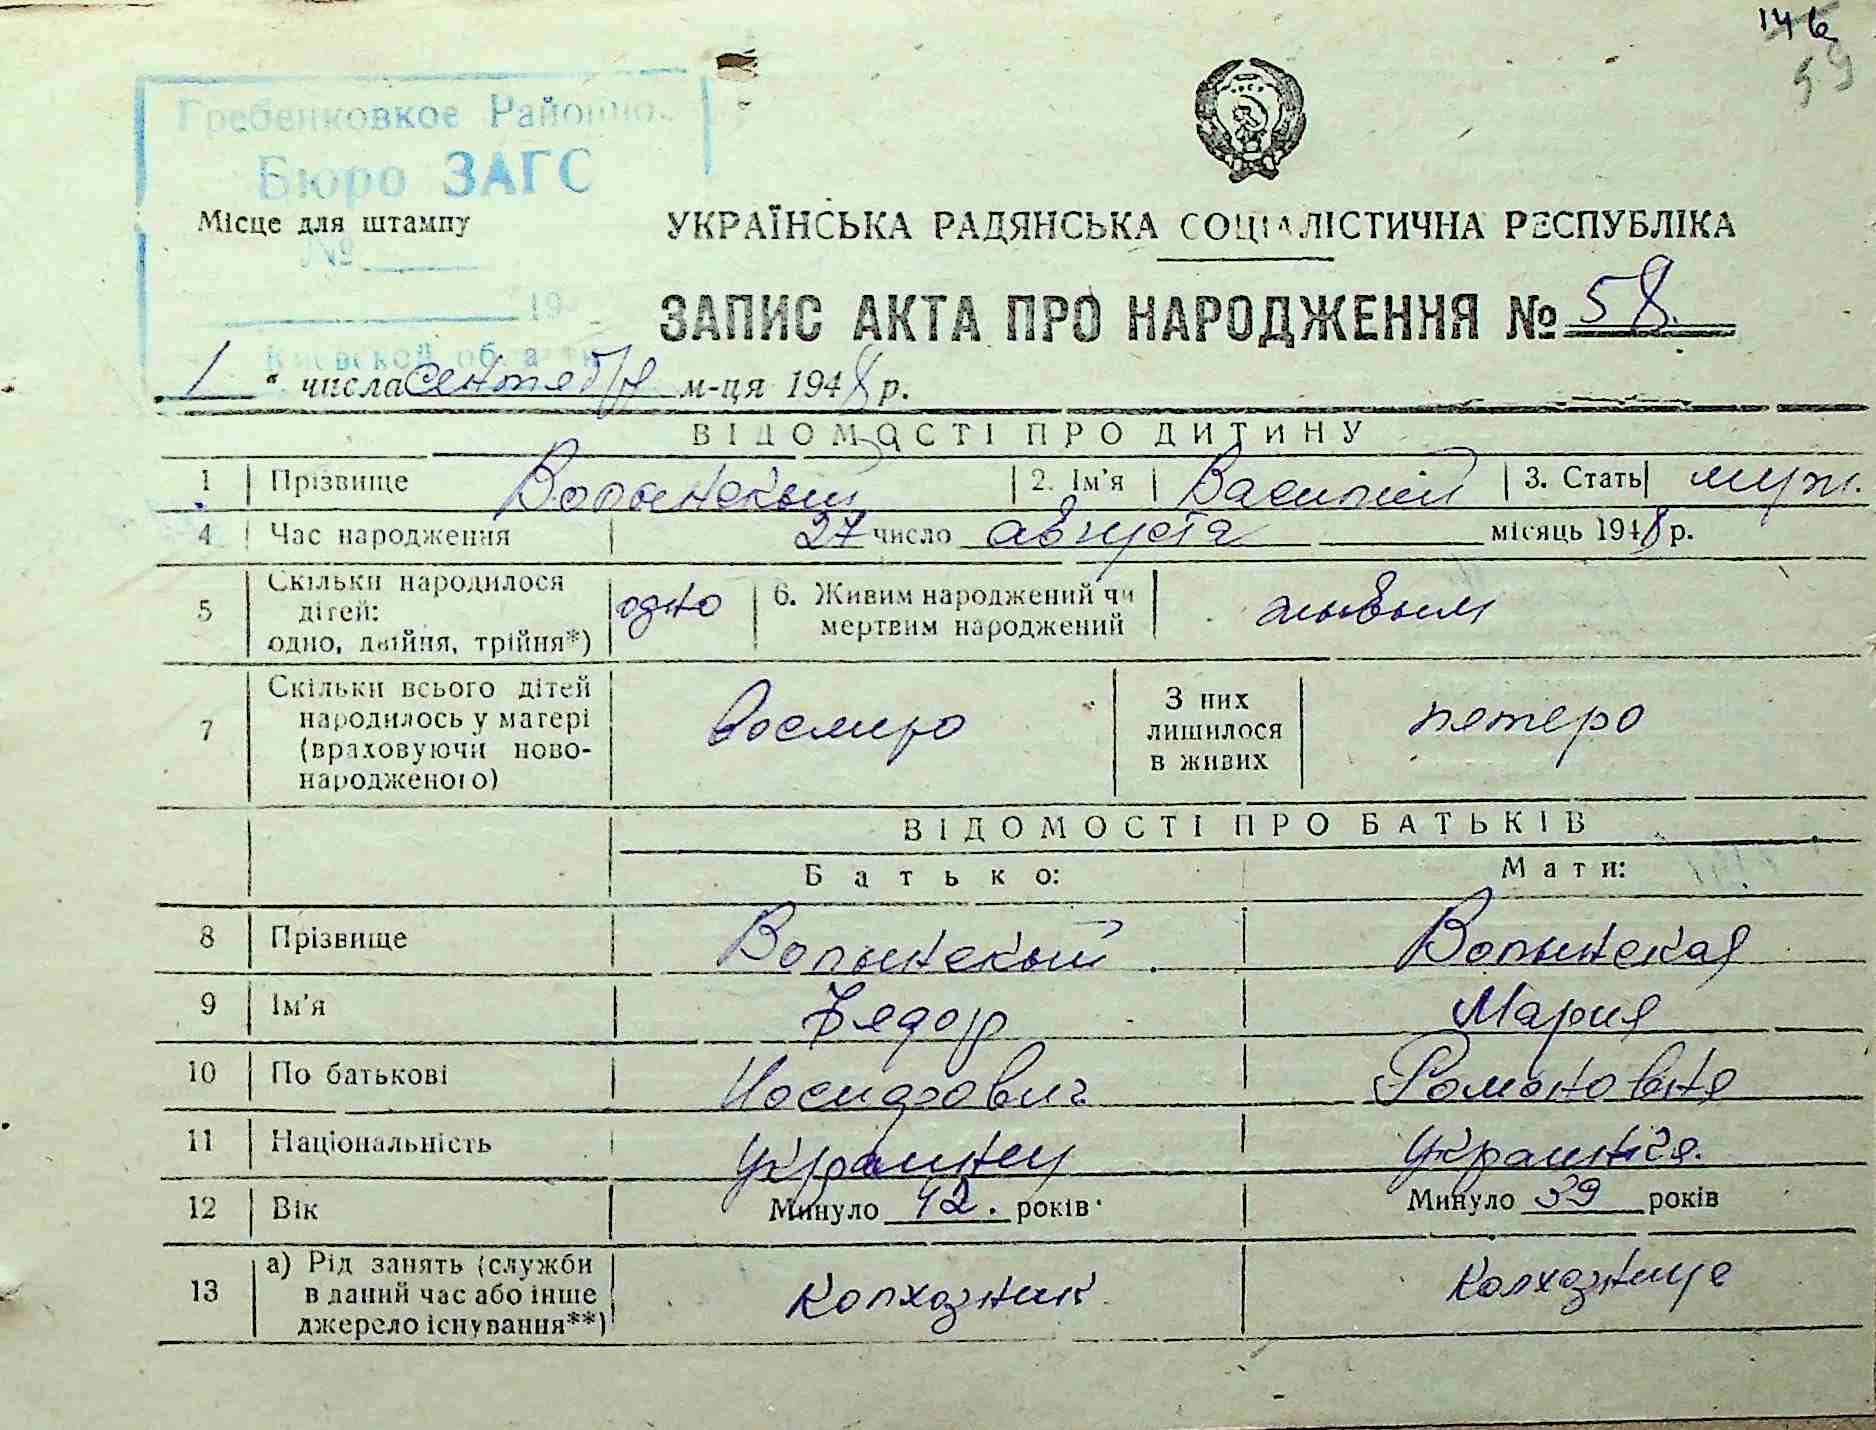 146
59
Гребенковкое Районное
Бюро ЗАГС
Місце для штампу
№
19
Киевской области
УКРАЇНСЬКА РАДЯНСЬКА СОЦІАЛІСТИЧНА РЕСПУБЛІКА
ЗАПИС АКТА ПРО НАРОДЖЕННЯ № 58.
1 " числа сентября м-ця 1948 р.
ВІДОМОСТІ ПРО ДИТИНУ
1 Прізвище Волынский 2. Ім'я Василий 3. Стать муж.
4 Час народження 27 число августа місяць 1948 р.
5 Скільки народилося дітей: одно, двійня, трійня*) одно 6. Живим народжений чи мертвим народжений живым
7 Скільки всього дітей народилось у матері (враховуючи новонародженого) восмиро З них лишилося в живих пятеро
ВІДОМОСТІ ПРО БАТЬКІВ
Батько: Мати:
8 Прізвище Волынский Волынская
9 Ім'я Фядор Мария
10 По батькові Иосифович Романовня
11 Національність украинец украинка.
12 Вік Минуло 42. років Минуло 39 років
13 а) Рід занять (служби в даний час або інше джерело існування**) колхозник колхозница